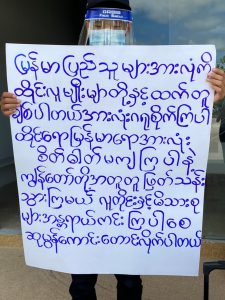 မြန်မာပြည်သူများအားလုံးကို
ထိုင်းလူမျိုးများတို့နှင့်ထက်တူ
ချစ်ပါတယ်အားလုံးဂရုစိုက်ကြပါ
ထိုင်းရောမြန်မာရောအားလုံး
စိတ်ဓါတ်မကျကြပါနဲ့
ကျွန်တော်တို့အတူတူဖြတ်သန်း
သွားကြမယ် လူတိုင်းနှင့်မိသားစု
များအန္တရာယ်ကင်းကြပါစေ
ဆုမွန်ကောင်းတောင်းလိုက်ပါတယ်